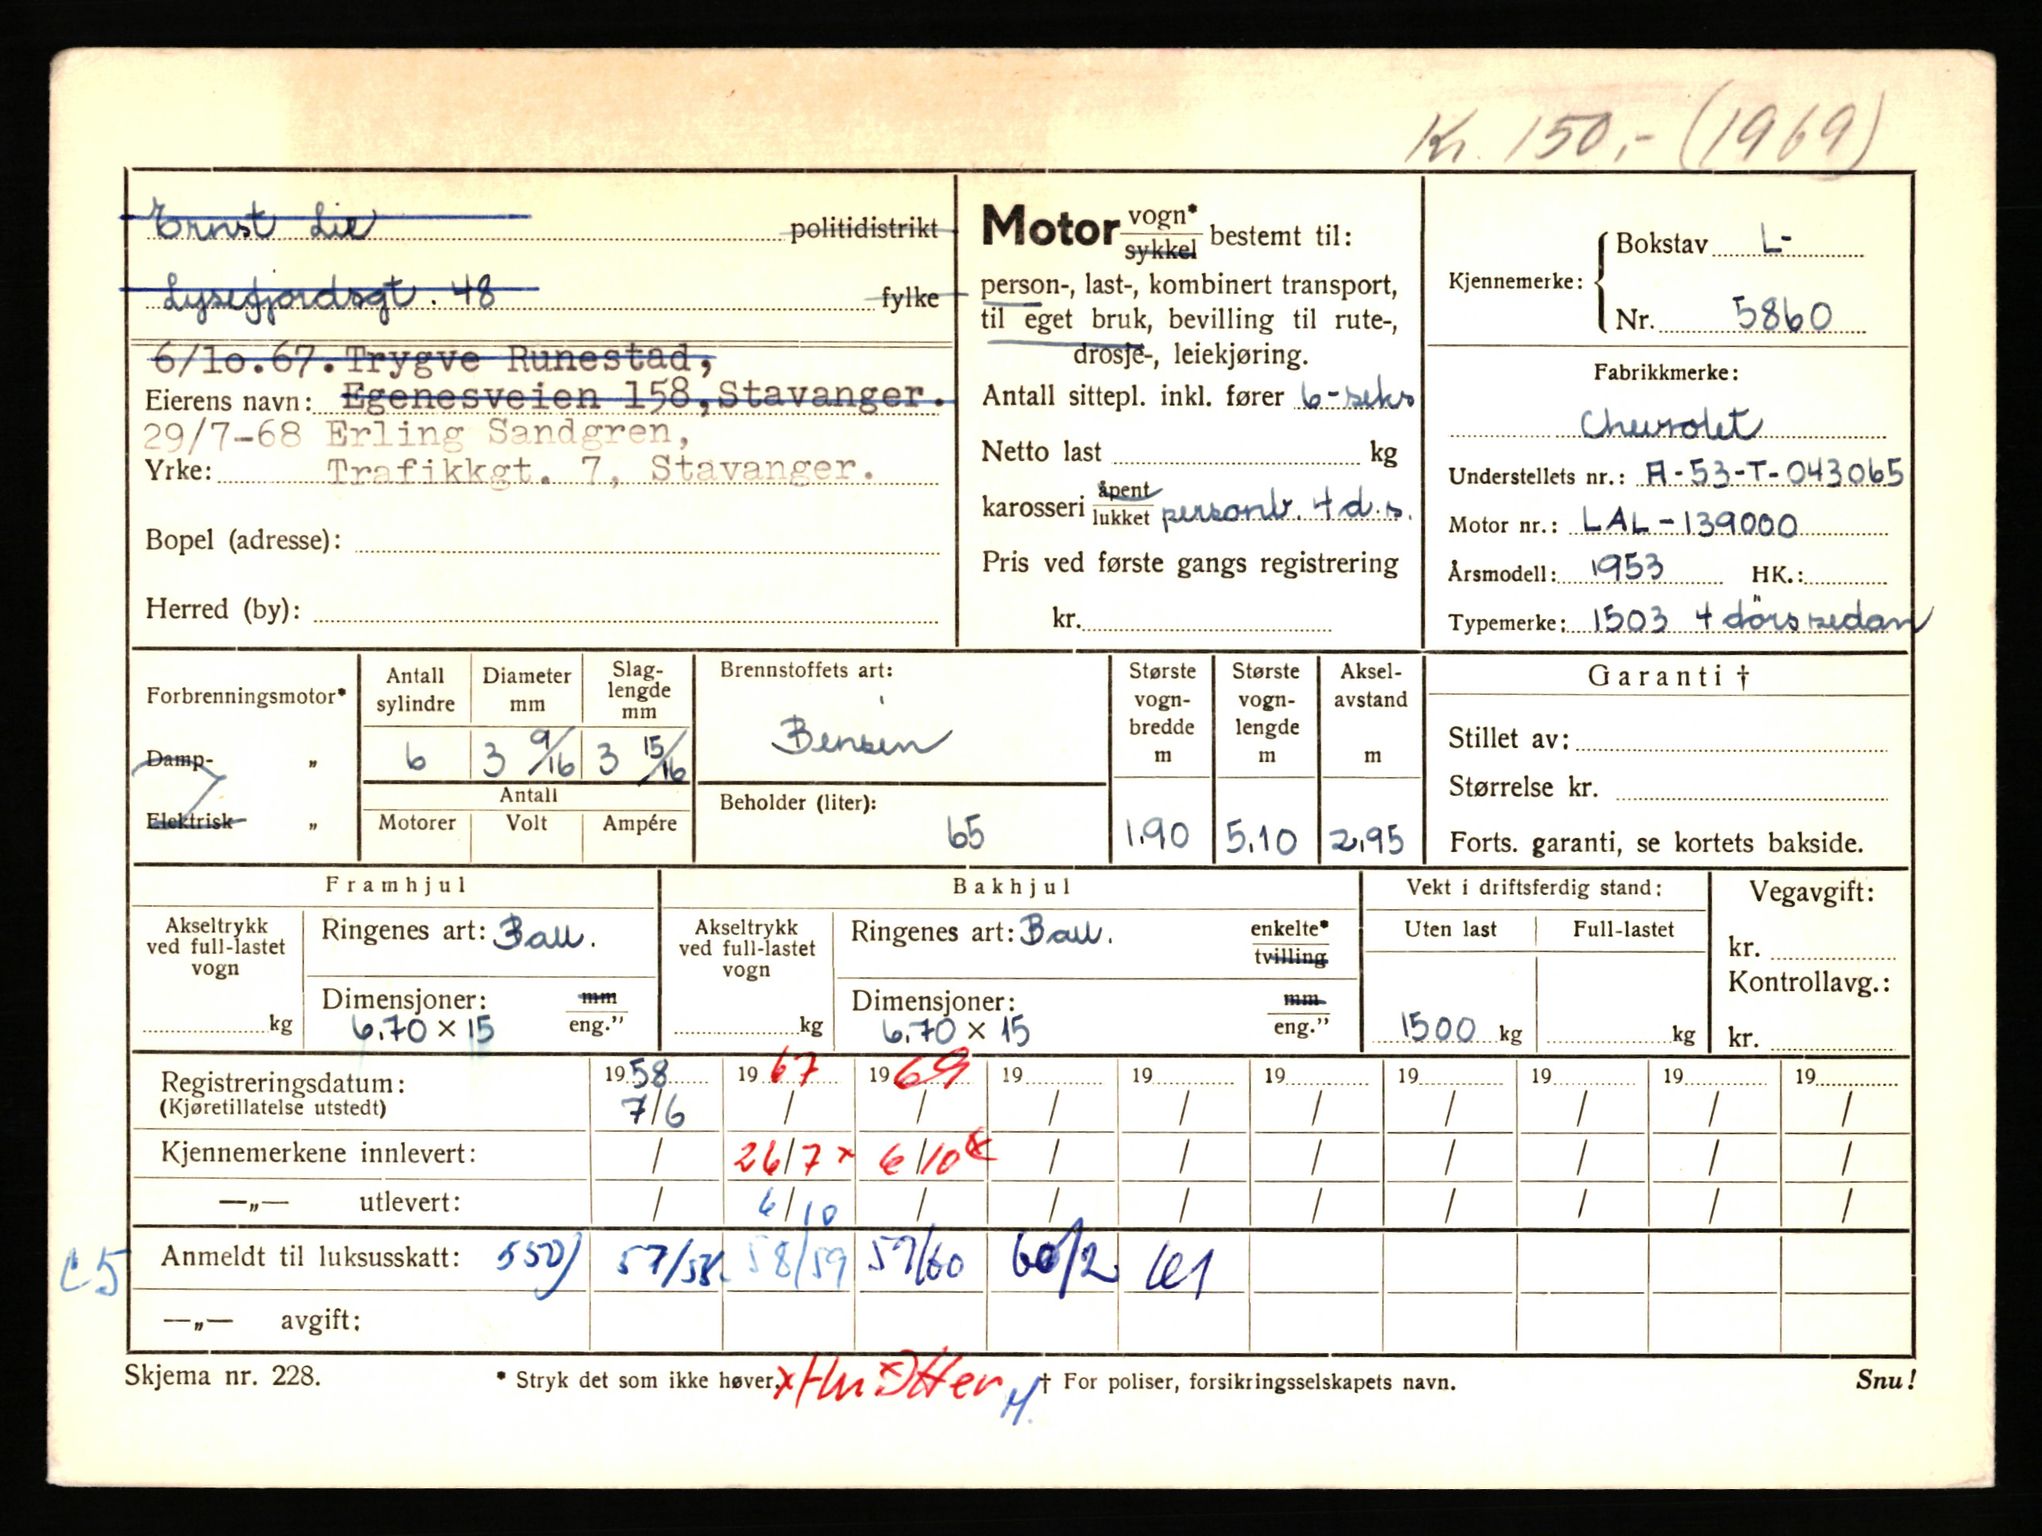 Kr. 150,- (1969)
Ernst Lie politidistrikt
Lysefjordsgt. 48 fylke
6/10.67. Trygve Runestad,
Eierens navn: Egenesveien 158, Stavanger.
29/7-68 Erling Sandgren,
Yrke: Trafikkgt. 7, Stavanger.
Bopel (adresse):
Herred (by):
Motor vogn* sykkel bestemt til:
person-, last-, kombinert transport,
til eget bruk, bevilling til rute-,
drosje-, leiekjøring.
Antall sittepl. inkl. fører 6-seks
Netto last kg
karosseri åpent lukket personb. 4 d.s.
Pris ved første gangs registrering
kr.
Kjennemerke: Bokstav L-
Nr. 5860
Fabrikkmerke:
Chevrolet
Understellets nr.: A-53-T-043065
Motor nr.: LAL-139000
Årsmodell: 1953 HK.: "
Typemerke: 1503 4 dörs sedan
Forbrenningsmotor*
Damp- „
Elektrisk „
Antall sylindre 6
Diameter mm 3 9/16
Slaglengde mm 3 15/16
Antall
Motorer Volt Ampére
Brennstoffets art:
Bensin
Beholder (liter):
65
Største vognbredde m 1.90
Største vognlengde m 5.10
Akselavstand m 2.95
Garanti †
Stillet av:
Størrelse kr.
Forts. garanti, se kortets bakside.
Framhjul
Akseltrykk ved full-lastet vogn kg
Ringenes art: Ball.
Dimensjoner: mm eng."
6.70 x 15
Bakhjul
Akseltrykk ved full-lastet vogn kg
Ringenes art: Ball. enkelte* tvilling
Dimensjoner: mm eng."
6.70 x 15
Vekt i driftsferdig stand:
Uten last Full-lastet
1500 kg kg
Vegavgift:
kr.
Kontrollavg.:
kr.
Registreringsdatum: 1958 1967 1969 19 19 19 19 19 19 19
(Kjøretillatelse utstedt) 7/6 / / / / / / / / /
Kjennemerkene innlevert: / 26/7 x 6/10 x / / / / / / /
—„— utlevert: / 6/10 / / / / / / / /
C5 Anmeldt til luksusskatt: 550) 57/58 58/59 59/60 60/2 61
—„— avgift:
Skjema nr. 228. * Stryk det som ikke høver. † For poliser, forsikringsselskapets navn. Snu!